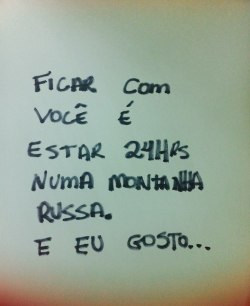 FICAR COM
VOCÊ É
ESTAR 24HRS
NUMA MONTANHA
RUSSA.
E EU GOSTO...